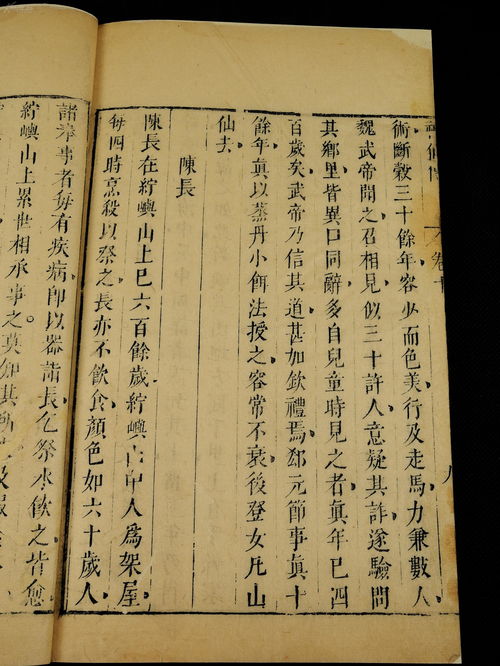 卷十
術斷穀三十餘年容少而色美行及走馬力兼數人
魏武帝聞之召相見似三十許人意疑其詐遂驗問
其鄉里皆異口同辭多自兒童時見之者眞年已四
百歲矣武帝乃信其道甚加欽禮焉郄元節事眞十
餘年眞以蒸丹小餌法授之容常不衰後登女几山
仙去
陳長
陳長在紵嶼山上已六百餘歲紵嶼山中人爲架屋
每四時烹殺以祭之長亦不飲食顏色如六十歲人
諸奉事者每有疾病卽以器詣長乞祭水飲之皆愈
紵嶼山上累世相承事之莫知其